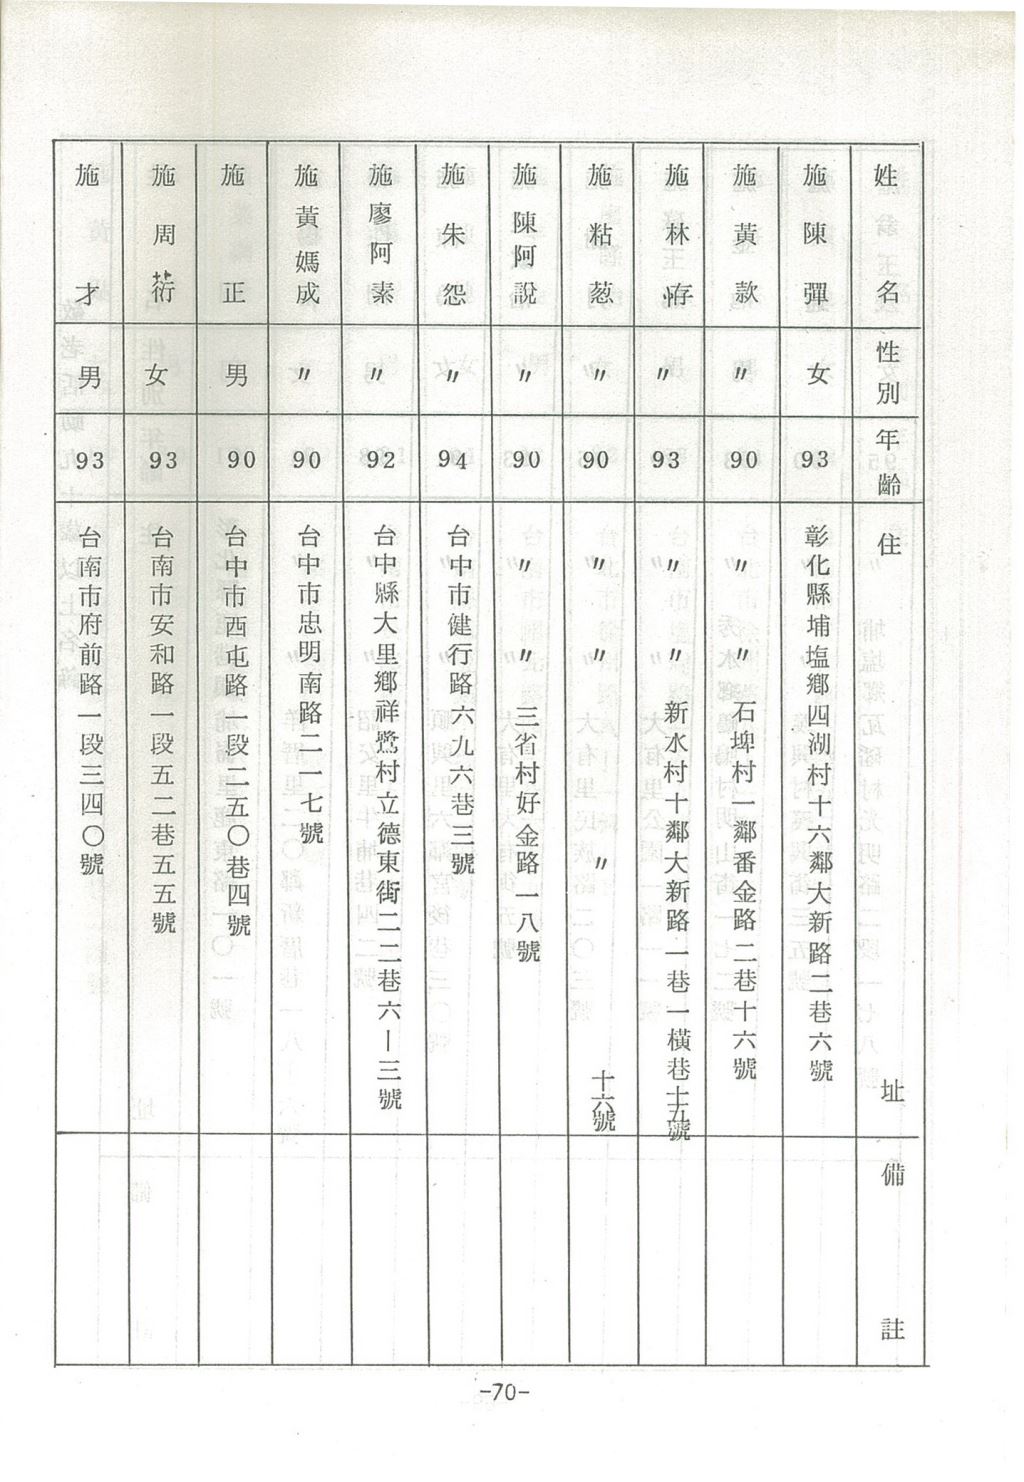 姓名 性別 年齡 住址 備註
施陳彈 女 93 彰化縣埔塩鄉四湖村十六鄰大新路二巷六號
施黃款 〃 90 〃 〃 石埤村一鄰番金路二巷十六號
施林 93 〃 〃 〃 新水村十鄰大新路一巷一橫巷十五號
施粘葱 〃 90 〃 〃 〃 十六號
施陳阿說 〃 90 〃 〃 三省村好金路一八號
施朱怨 〃 94 台中市健行路六九六巷三號
施廖阿素 〃 92 台中縣大里鄉祥鷺村立德東街二二巷六－三號
施黃媽成 〃 90 台中市忠明南路二一七號
施正 男 90 台中市西屯路一段二五〇巷四號
施周 女 93 台南市安和路一段五二巷五五號
施才 男 93 台南市府前路一段三四〇號
-70-